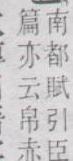 南都賦引臣
篇亦云帛赤